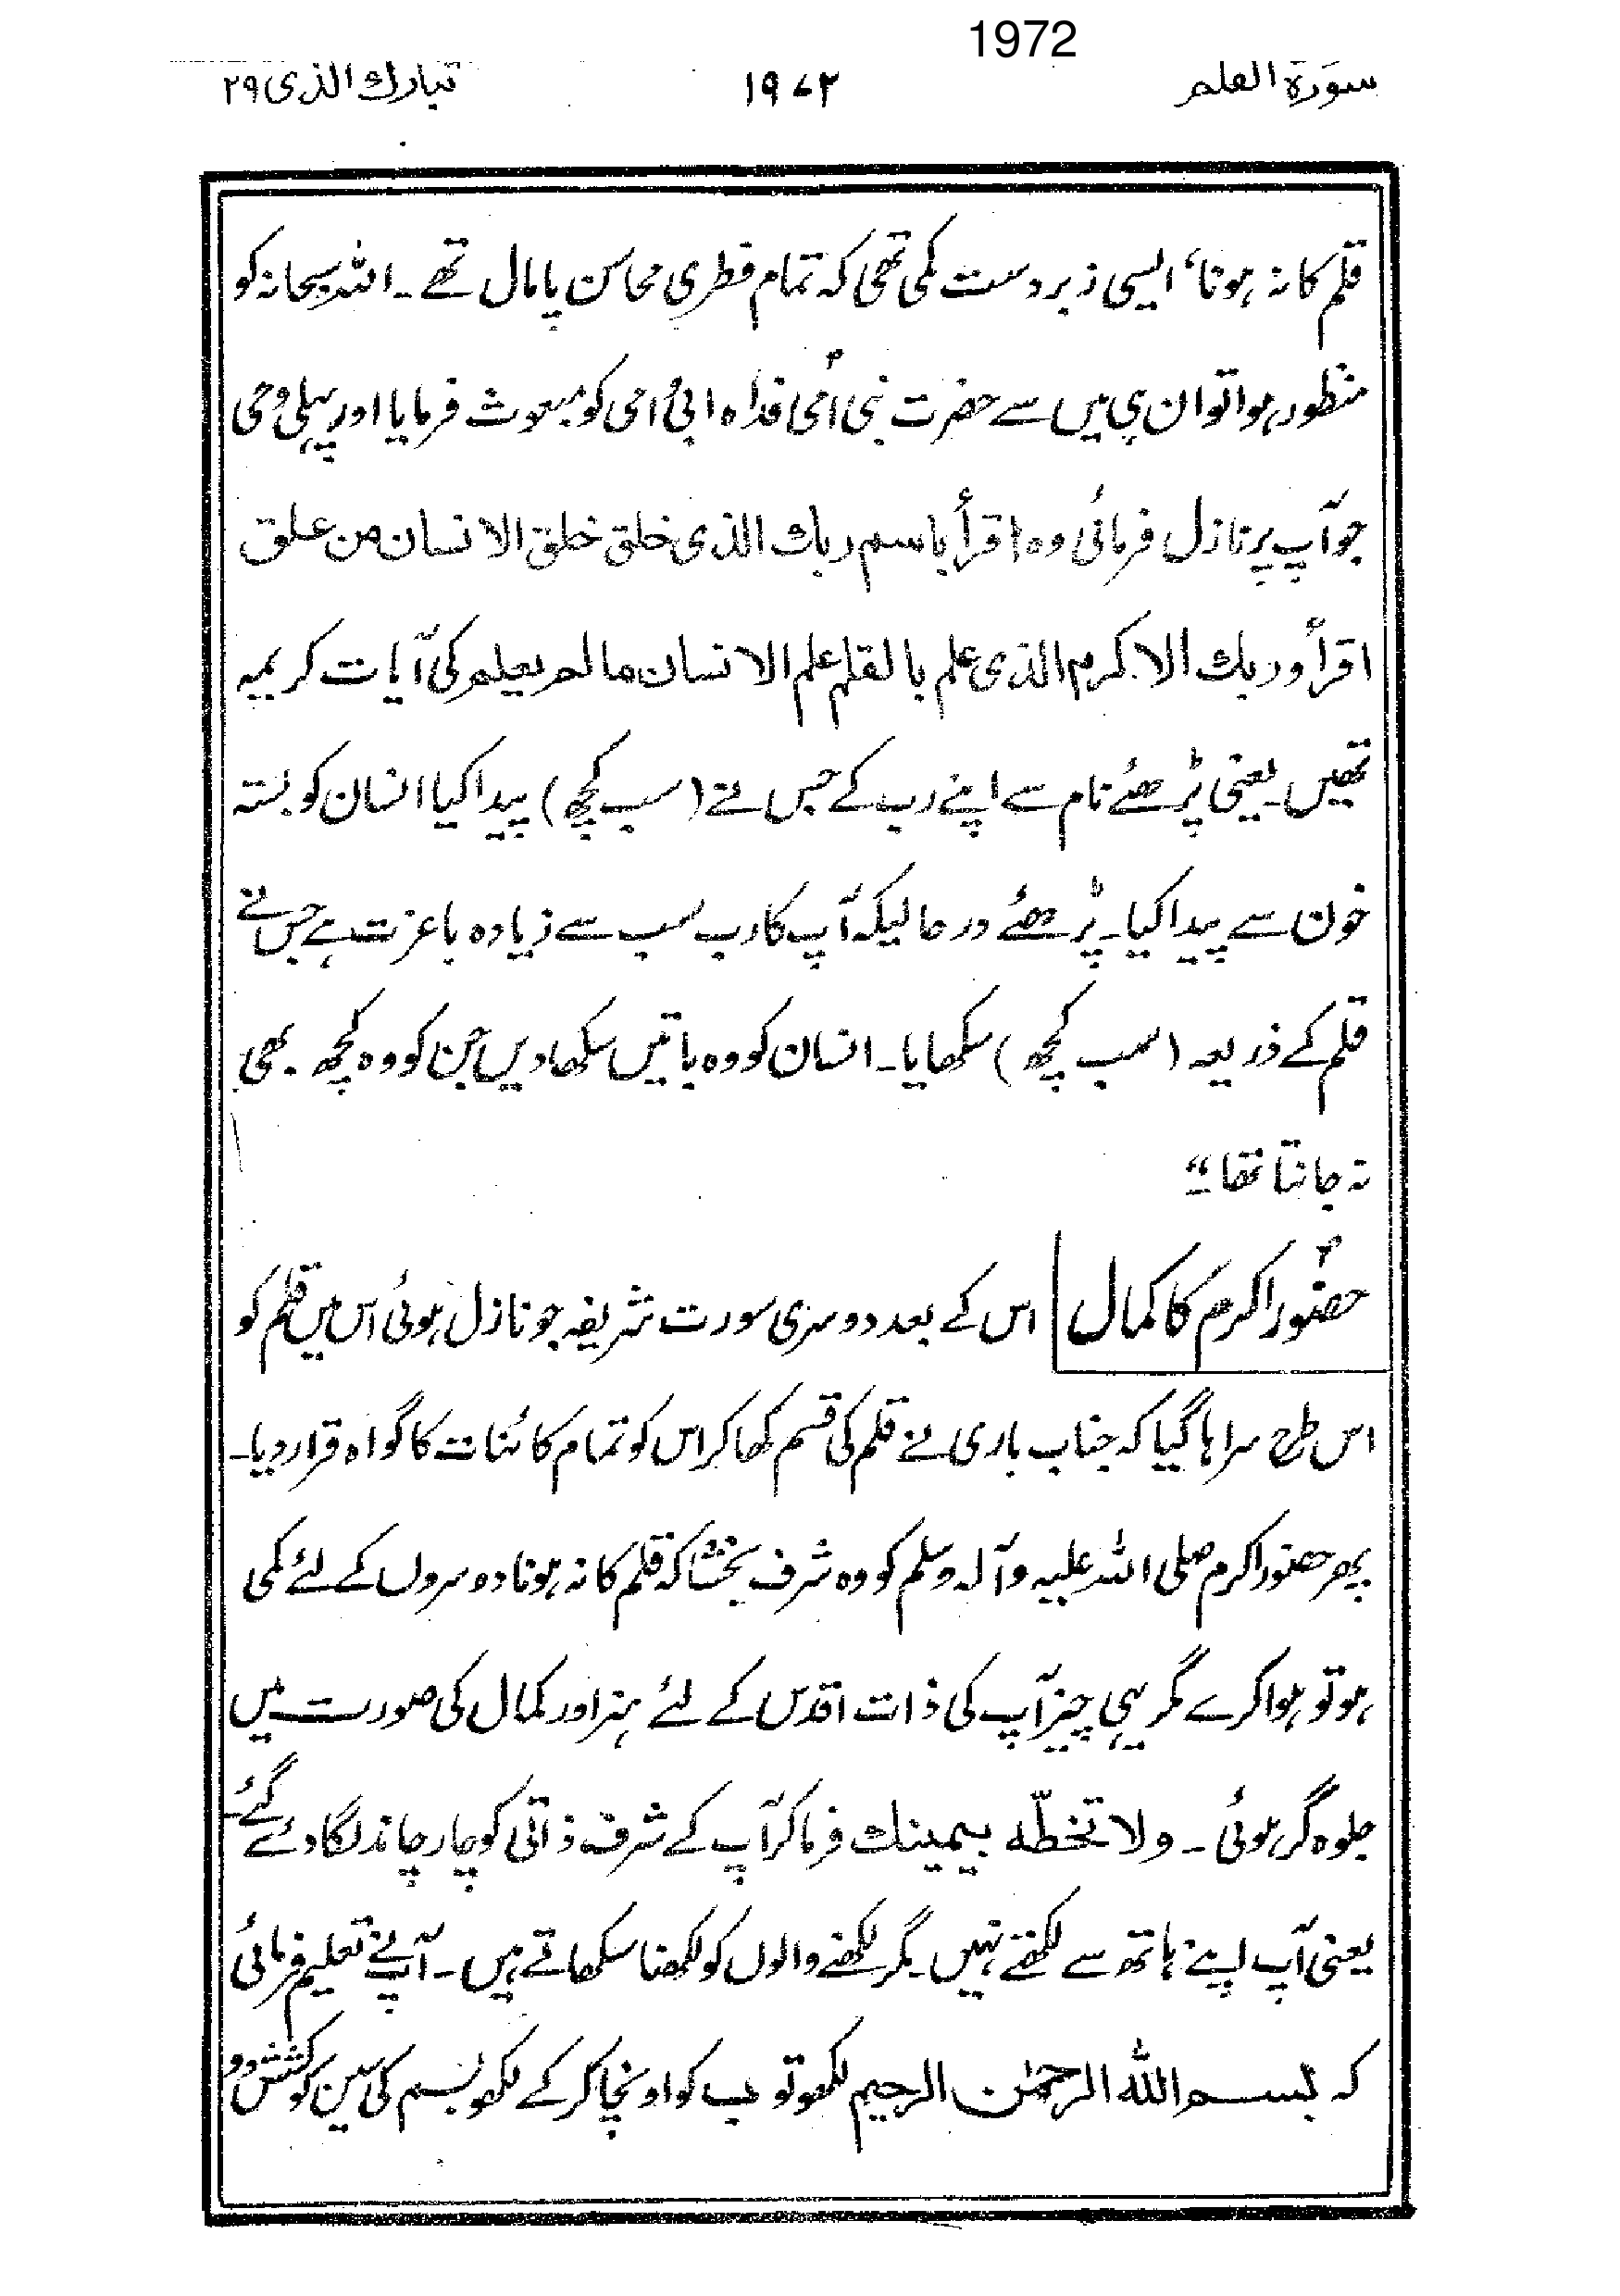 1972
سورة القلم ۱۹۷۲ تبارك الذی ۲۹
قلم کا نہ ہونا، ایسی زبردست کمی تھی کہ تمام فطری محاسن پامال تھے۔ اللہ سبحانہ کو
منظور ہوا تو ان ہی میں سے حضرت نبی اُمیؐ فداہ ابی امی کو مبعوث فرمایا اور پہلی وحی
جو آپ پر نازل فرمائی وہ اقرأ باسم ربك الذی خلق خلق الانسان من علق
اقرأ وربك الاکرم الذی علم بالقلم علم الانسان مالم یعلم کی آیات کریمہ
تھیں۔ یعنی پڑھئے نام سے اپنے رب کے جس نے (سب کچھ) پیدا کیا انسان کو بستہ
خون سے پیدا کیا۔ پڑھئے درحالیکہ آپ کا رب سب سے زیادہ باعزت ہے جس نے
قلم کے ذریعہ (سب کچھ) سکھایا۔ انسان کو وہ باتیں سکھا دیں جن کو وہ کچھ بھی
نہ جانتا تھا۔“
حضورؐ اکرم کا کمال اس کے بعد دوسری سورت شریفہ جو نازل ہوئی اس میں قلم کو
اس طرح سراہا گیا کہ جناب باری نے قلم کی قسم کھا کر اس کو تمام کائنات کا گواہ قرار دیا۔
پھر حضور اکرم صلی اللہ علیہ وآلہ وسلم کو وہ شرف بخشا کہ قلم کا نہ ہونا دوسروں کے لئے کمی
ہو تو ہوا کرے مگر یہی چیز آپ کی ذات اقدس کے لئے ہنر اور کمال کی صورت میں
جلوہ گر ہوئی۔ ولا تخطّه بیمینك فرما کر آپ کے شرف ذاتی کو چار چاند لگا دئے گئے۔
یعنی آپ اپنے ہاتھ سے لکھتے نہیں۔ مگر لکھنے والوں کو لکھنا سکھاتے ہیں۔ آپ نے تعلیم فرمائی
کہ بسم الله الرحمٰن الرحیم لکھو تو ب کو اونچا کر کے لکھو بسم کی سین کو کشش دو